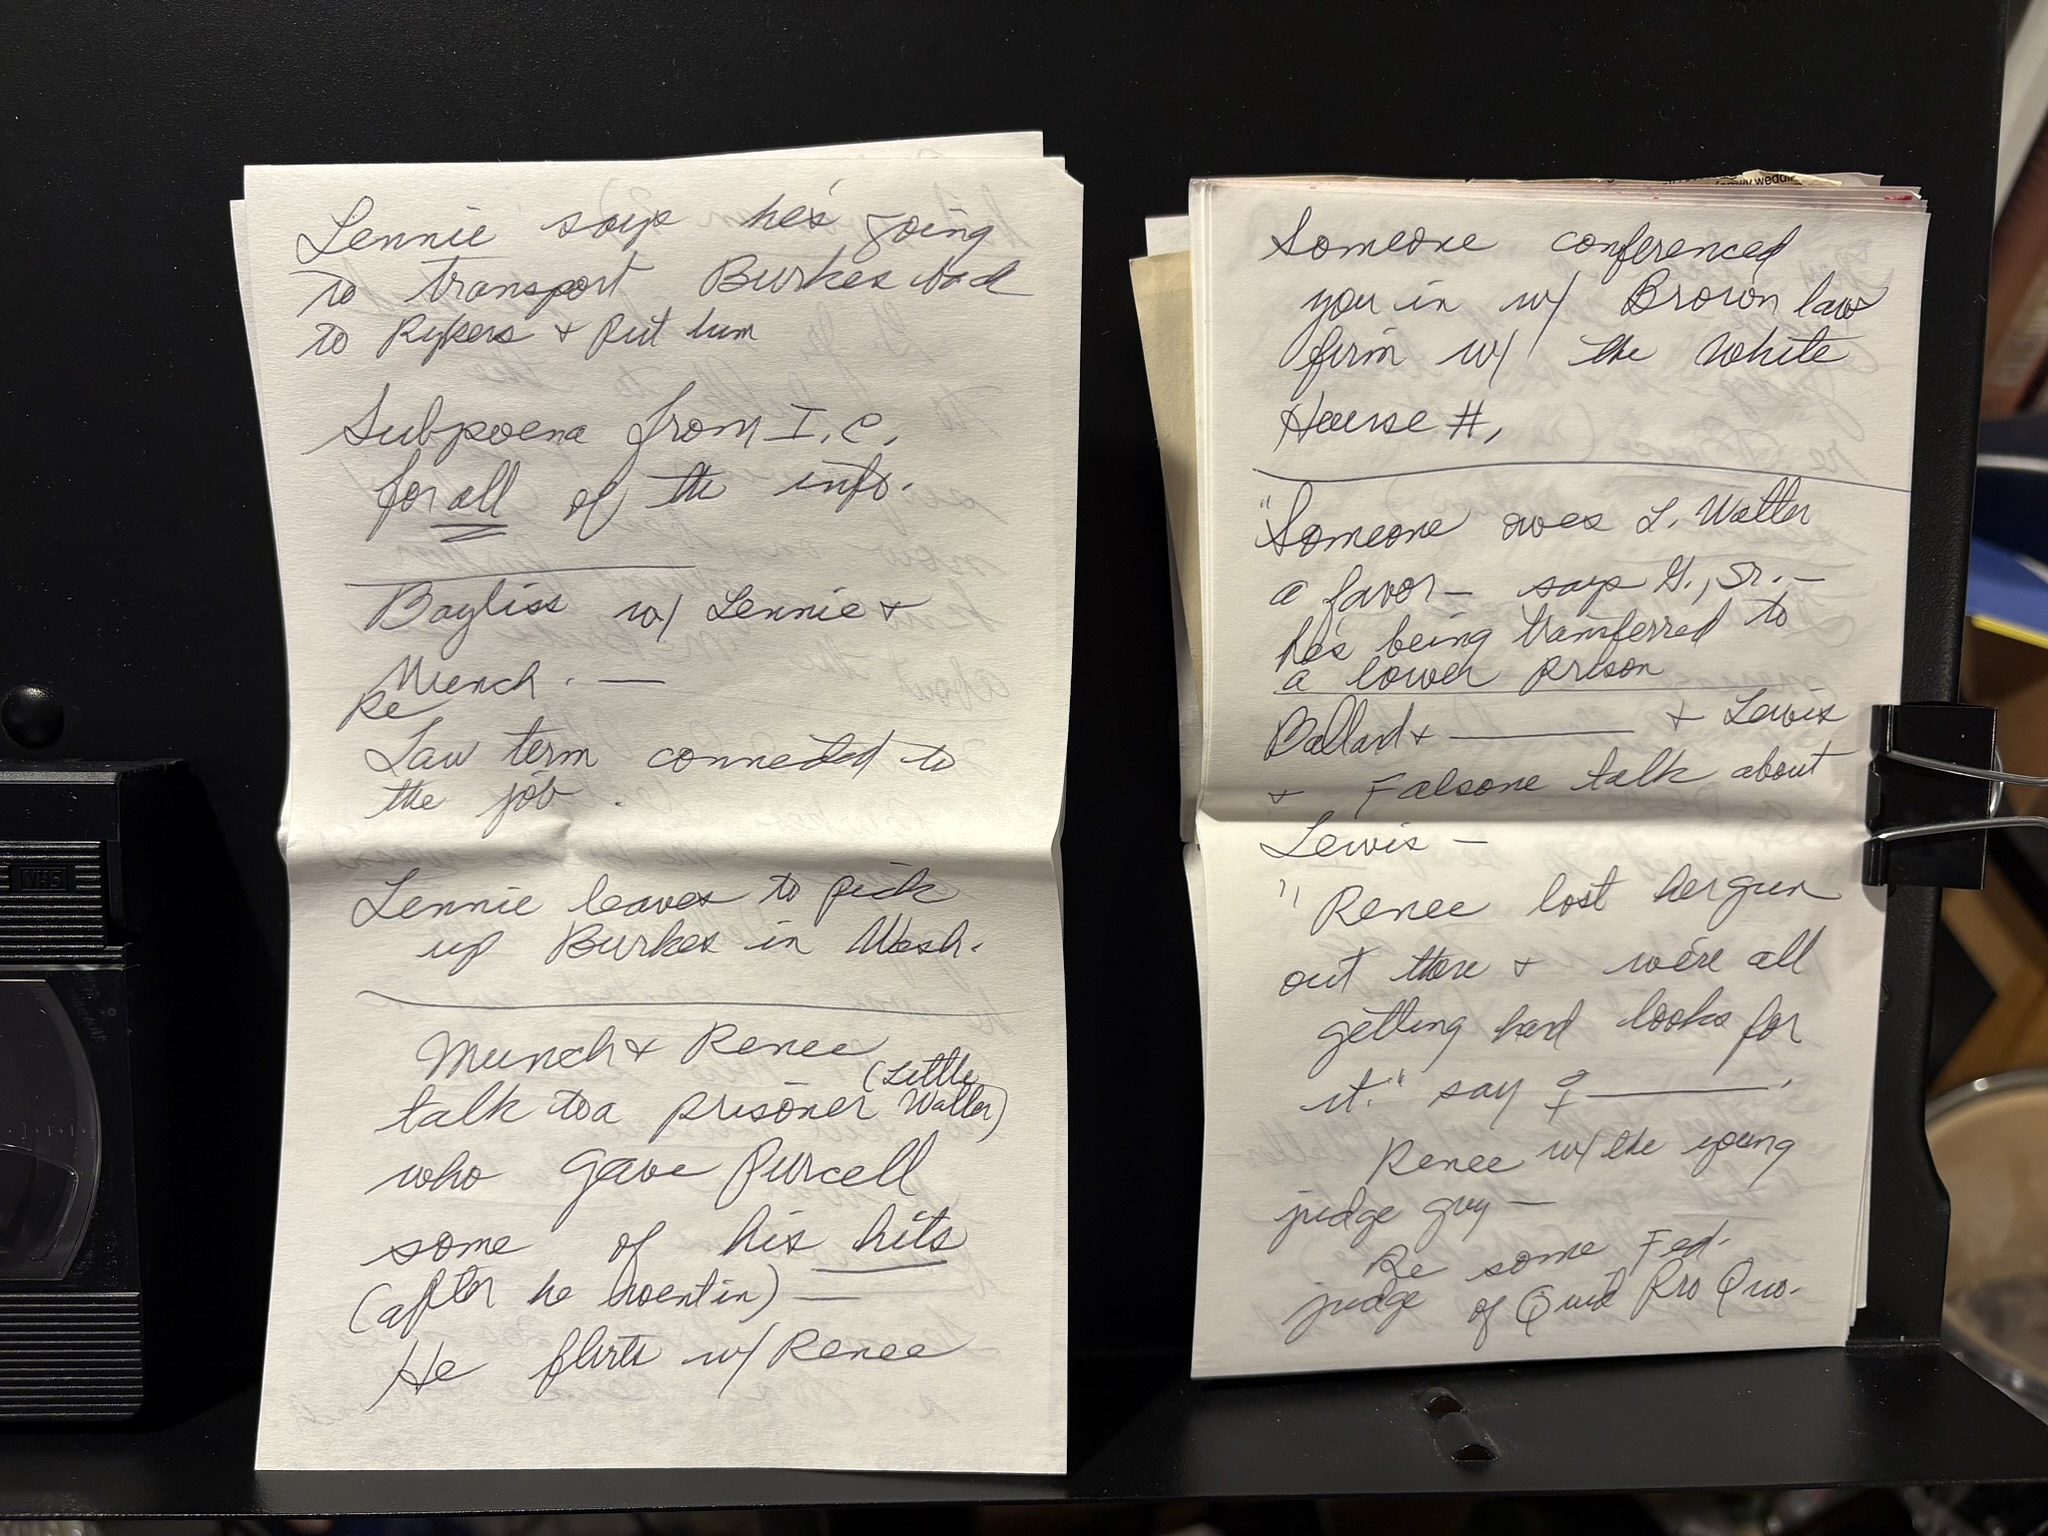 Lennie says he's going
to transport Burkes back
to Rykers + put him
Subpoena from I.C.
for all of the info.
Bayliss w/ Lennie +
Munch. —
Re
Law term connected to
the job.
Lennie leaves to pick
up Burkes in Wash.
Munch + Renee
talk to a prisoner (Little
Walter)
who gave Purcell
some of his hits
(after he went in) —
He flirts w/ Renee
VHS
family wedding
Someone conferenced
you in w/ Brown law
firm w/ the White
House #,
"Someone owes L. Walter
a favor — says G., Sr. —
he's being transferred to
a lower prison
Ballard + ____ + Lewis
+ Falsone talk about
Lewis —
" Renee lost her gun
out there + we're all
getting hard looks for
it." say ♀ ____.
Renee w/ the young
judge guy —
Re some Fed.
judge of Quid Pro Quo.